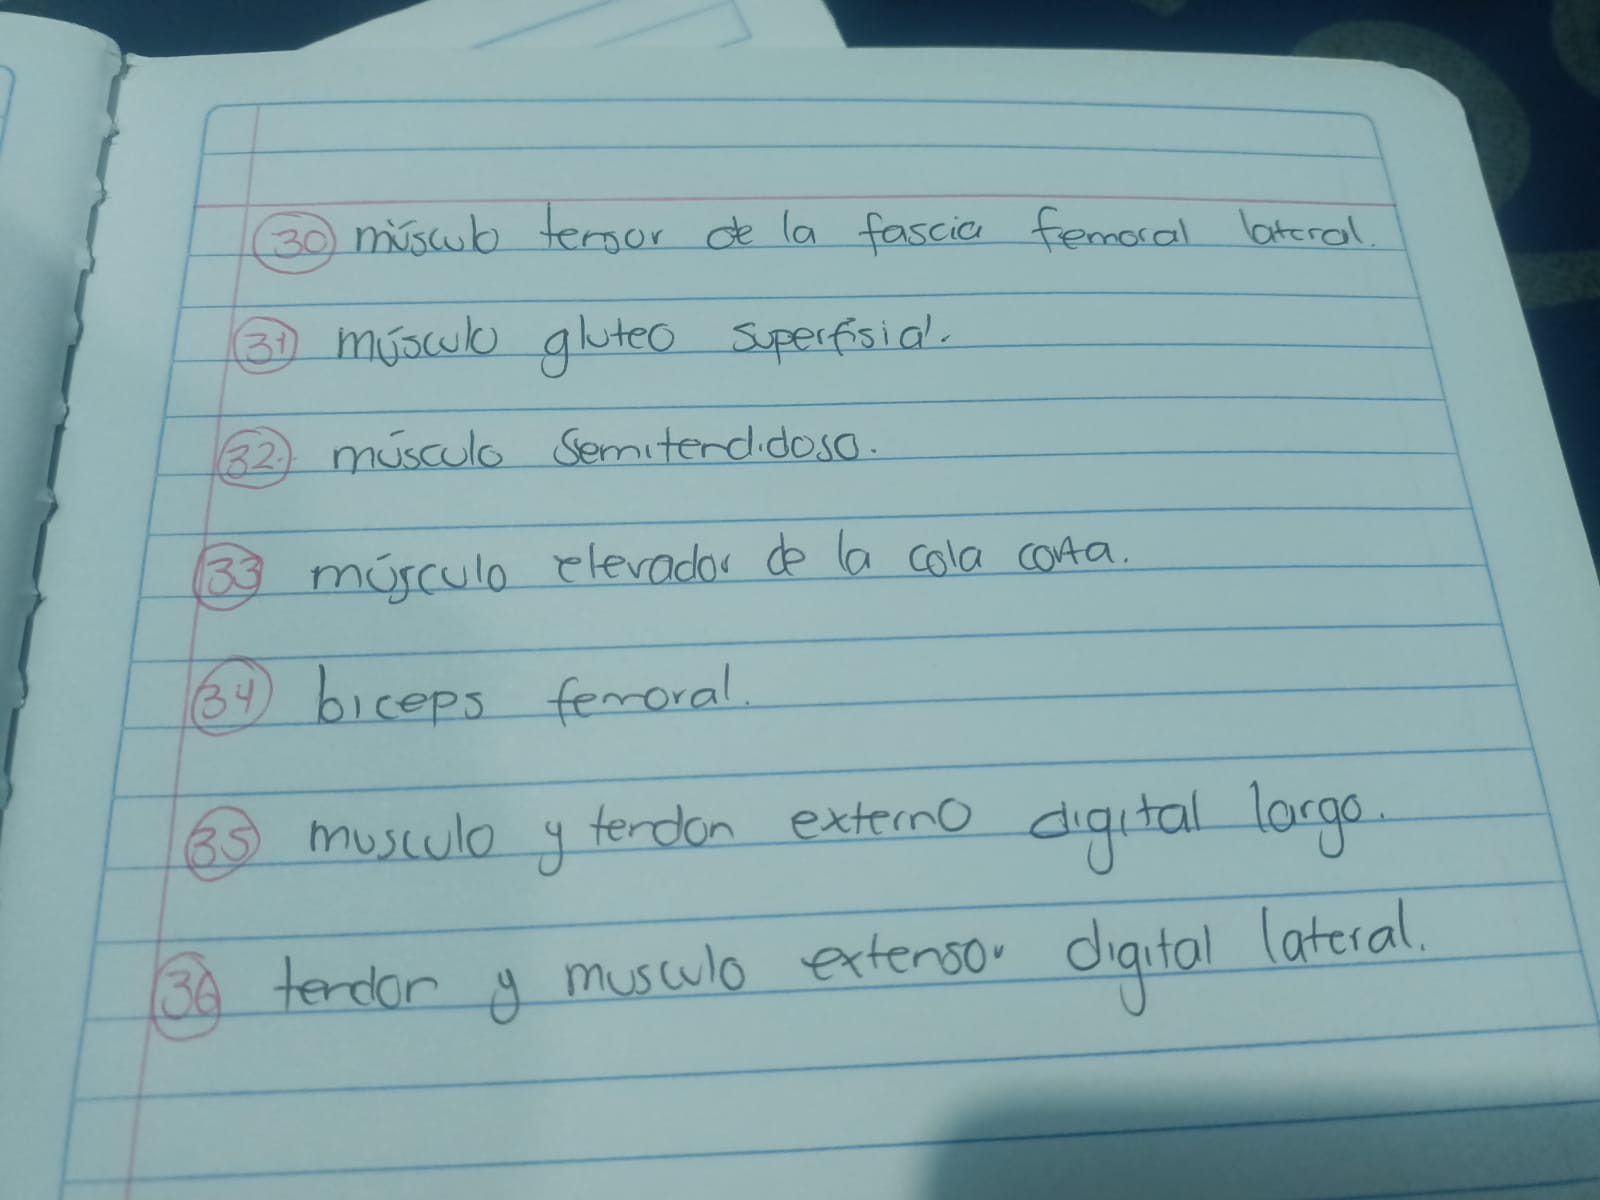 30 músculo tensor de la fascia femoral lateral.
31 músculo gluteo superfisial.
32. músculo semitendidoso.
33 músculo elevador de la cola corta.
34 biceps femoral.
35 musculo y tendon externo digital largo.
36 tendon y musculo extensor digital lateral.